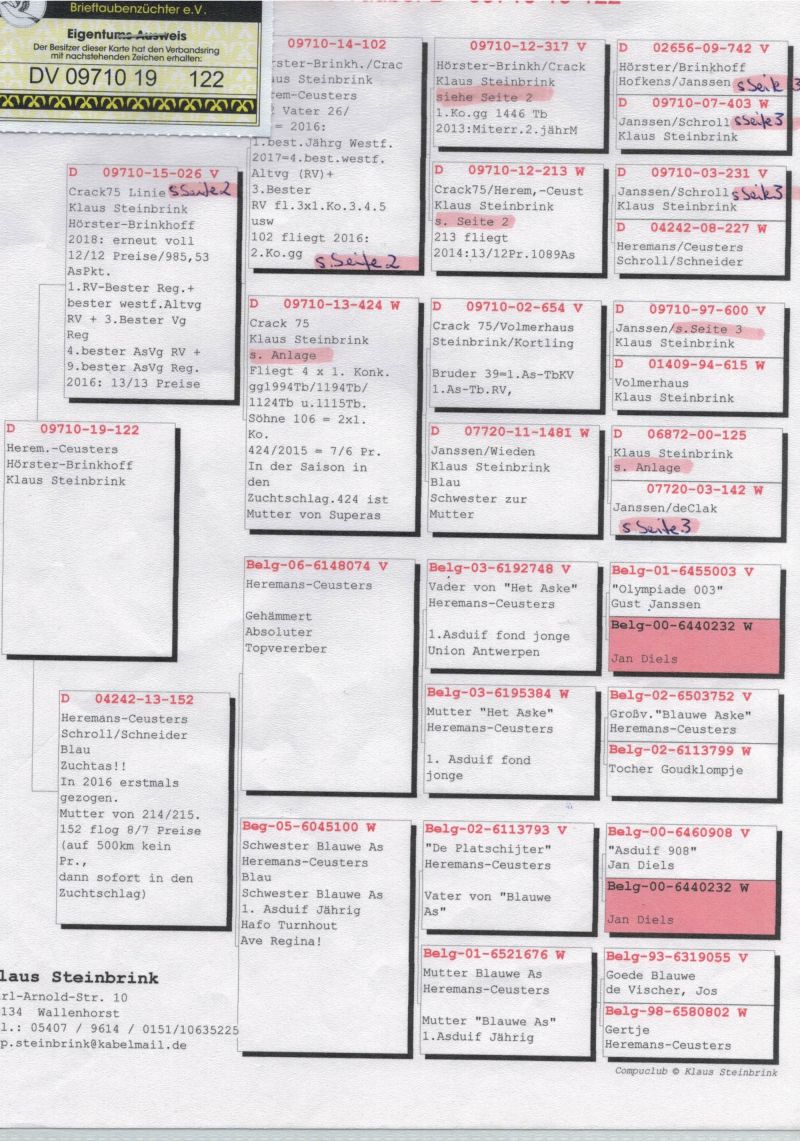 Brieftaubenzüchter e.V.
Eigentums-Ausweis
Der Besitzer dieser Karte hat den Verbandsring
mit nachstehenden Zeichen erhalten:
DV 09710 19 122
D 09710-19-122
Herem.-Ceusters
Hörster-Brinkhoff
Klaus Steinbrink
D 09710-15-026 V
Crack75 Linie s Seite 2
Klaus Steinbrink
Hörster-Brinkhoff
2018: erneut voll
12/12 Preise/985,53
AsPkt.
1.RV-Bester Reg.+
bester westf.Altvg
RV + 3.Bester Vg
Reg
4.bester AsVg RV +
9.bester AsVg Reg.
2016: 13/13 Preise
D 04242-13-152
Heremans-Ceusters
Schroll/Schneider
Blau
Zuchtas!!
In 2016 erstmals
gezogen.
Mutter von 214/215.
152 flog 8/7 Preise
(auf 500km kein
Pr.,
dann sofort in den
Zuchtschlag)
09710-14-102
rster-Brinkh./Crac
aus Steinbrink
rem-Ceusters
Vater 26/
= 2016:
1.best.Jährg Westf.
2017=4.best.westf.
Altvg (RV)+
3.Bester
RV fl.3x1.Ko.3.4.5
usw
102 fliegt 2016:
2.Ko.gg s. Seite 2
D 09710-13-424 W
Crack 75
Klaus Steinbrink
s. Anlage
Fliegt 4 x 1. Konk.
gg1994Tb/1194Tb/
1124Tb u.1115Tb.
Söhne 106 = 2x1.
Ko.
424/2015 = 7/6 Pr.
In der Saison in
den
Zuchtschlag.424 ist
Mutter von Superas
Belg-06-6148074 V
Heremans-Ceusters
Gehämmert
Absoluter
Topvererber
Beg-05-6045100 W
Schwester Blauwe As
Heremans-Ceusters
Blau
Schwester Blauwe As
1. Asduif Jährig
Hafo Turnhout
Ave Regina!
09710-12-317 V
Hörster-Brinkh/Crack
Klaus Steinbrink
siehe Seite 2
1.Ko.gg 1446 Tb
2013:Miterr.2.jährM
D 09710-12-213 W
Crack75/Herem,-Ceust
Klaus Steinbrink
s. Seite 2
213 fliegt
2014:13/12Pr.1089As
D 09710-02-654 V
Crack 75/Volmerhaus
Steinbrink/Kortling
Bruder 39=1.As-TbKV
1.As-Tb.RV,
D 07720-11-1481 W
Janssen/Wieden
Klaus Steinbrink
Blau
Schwester zur
Mutter
Belg-03-6192748 V
Vader von "Het Aske"
Heremans-Ceusters
1.Asduif fond jonge
Union Antwerpen
Belg-03-6195384 W
Mutter "Het Aske"
Heremans-Ceusters
1. Asduif fond
jonge
Belg-02-6113793 V
"De Platschijter"
Heremans-Ceusters
Vater von "Blauwe
As"
Belg-01-6521676 W
Mutter Blauwe As
Heremans-Ceusters
Mutter "Blauwe As"
1.Asduif Jährig
D 02656-09-742 V
Hörster/Brinkhoff
Hofkens/Janssen s Seite 3
D 09710-07-403 W
Janssen/Schroll s Seite 3
Klaus Steinbrink
D 09710-03-231 V
Janssen/Schroll s Seite 3
Klaus Steinbrink
D 04242-08-227 W
Heremans/Ceusters
Schroll/Schneider
D 09710-97-600 V
Janssen/s.Seite 3
Klaus Steinbrink
D 01409-94-615 W
Volmerhaus
Klaus Steinbrink
D 06872-00-125
Klaus Steinbrink
s. Anlage
07720-03-142 W
Janssen/deClak
s Seite 3
Belg-01-6455003 V
"Olympiade 003"
Gust Janssen
Belg-00-6440232 W
Jan Diels
Belg-02-6503752 V
Großv."Blauwe Aske"
Heremans-Ceusters
Belg-02-6113799 W
Tocher Goudklompje
Belg-00-6460908 V
"Asduif 908"
Jan Diels
Belg-00-6440232 W
Jan Diels
Belg-93-6319055 V
Goede Blauwe
de Vischer, Jos
Belg-98-6580802 W
Gertje
Heremans-Ceusters
laus Steinbrink
rl-Arnold-Str. 10
134 Wallenhorst
l.: 05407 / 9614 / 0151/10635225
p.steinbrink@kabelmail.de
Compuclub © Klaus Steinbrink